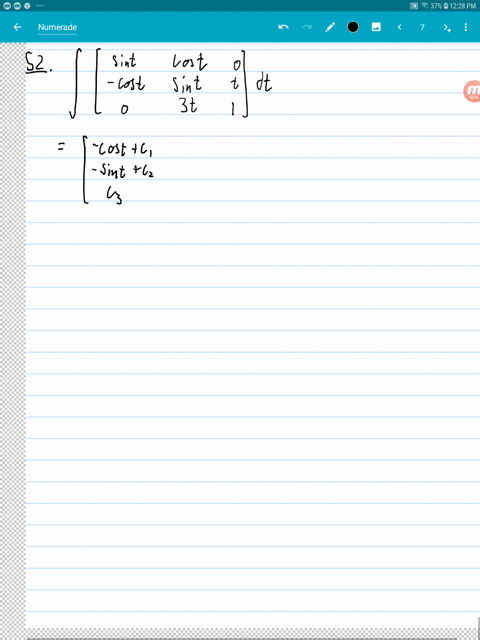 37% 12:28 PM
Numerade 7
52.
∫ [ sint cost 0
-cost sint t
0 3t 1 ] dt
= [ -cost + c₁
-sint + c₂
c₃